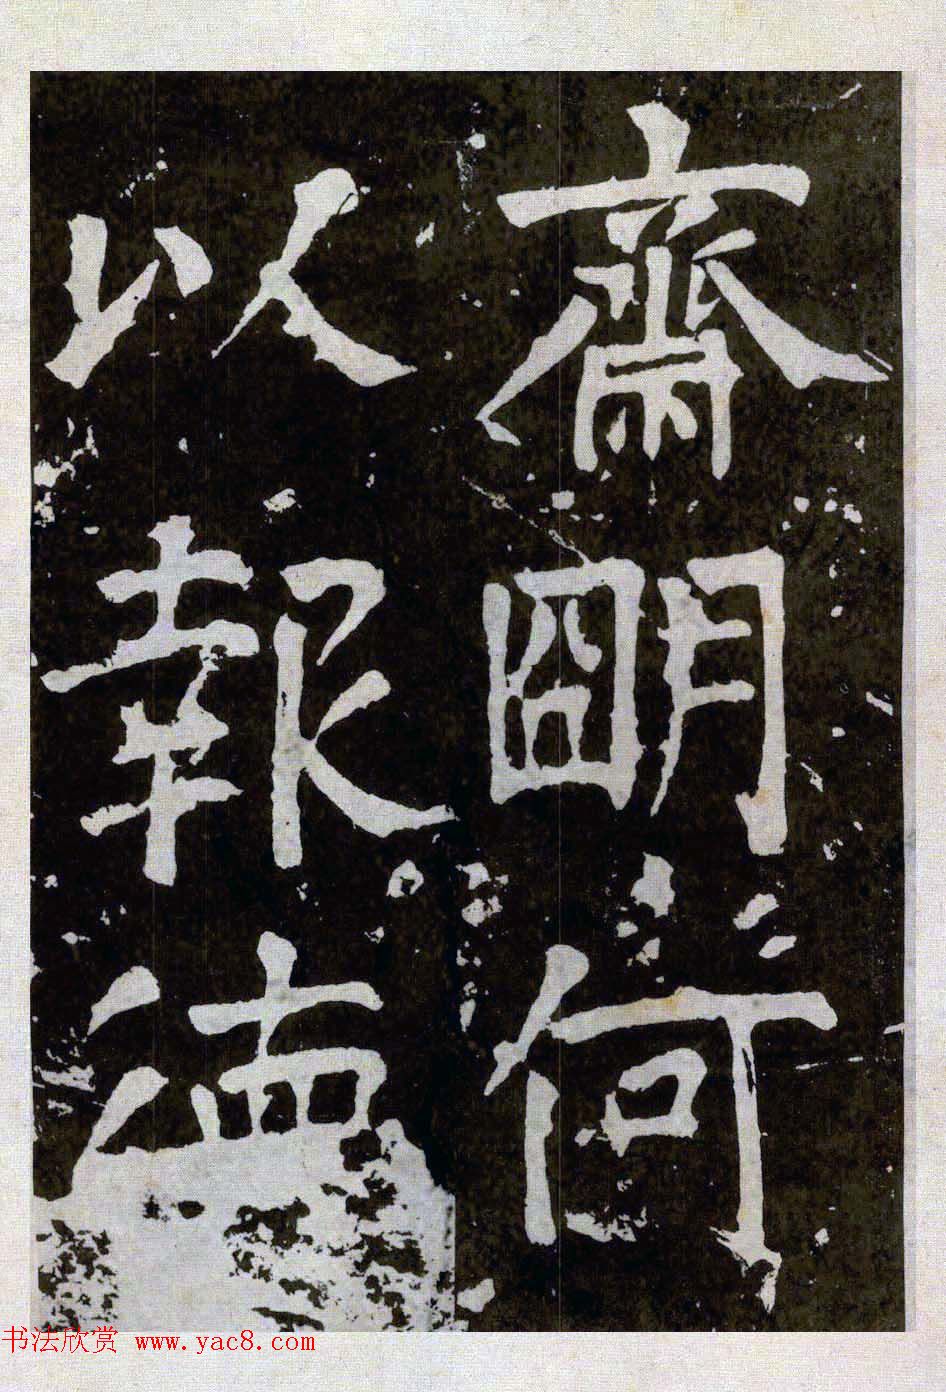 齋朙何
以報德
书法欣赏 www.yac8.com